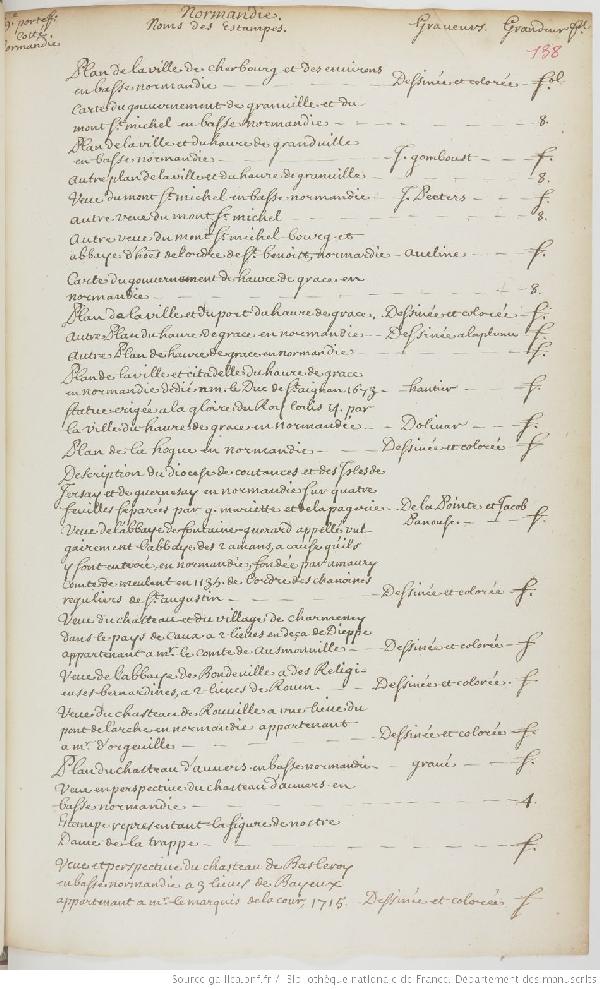 Normandie.
Noms des Estampes. Graveurs. Grandeur
Normandie 138
Plan de la ville de cherbourg et des environs
en basse normandie - Dessinée et colorée - fol.
Carte du gouvernement de granville et du
mont St. michel en basse normandie - 8.
Plan de la ville et du havre de grandville
en basse normandie - J. gomboust - f.
autre plan de la ville et du havre de granville - 8.
Veue du mont St. michel en basse normandie - J. Peeters - f.
autre veue du mont St. michel - 8.
Autre veue du mont St. michel bourg et
abbaye d'hoës de l'ordre de St. benoist, normandie - aveline - f.
Carte du gouvernement de havre de grace en
normandie - 8.
Plan de la ville et du port du havre de grace. Dessinée et colorée f.
autre Plan du havre de grace en normandie - Dessinée a la plume f.
autre Plan de havre de grace en normandie - f.
Plan de la ville et citadelle du havre de grace
en normandie dedié a m. le Duc de St. aignan. 1673 - hantier - f.
statue erigée a la gloire du Roy louis 14. par
la ville du havre de grace en normandie - Dolivar - f.
Plan de la hogue en normandie - Dessinée et colorée f
Description du diocese de coutances et des Isles de
Jersay et de guernesay en normandie sur quatre
feuilles separées par g. mariette et de la pagerie - De la Pointe et Jacob
Veue de l'abbaye de fontaine guerard appellé vul Panouse - f.
gairement l'abbaye des 2 amans, a cause qu'ils
y sont enterré, en normandie, fondée par amaury
comte de meulent en 1135. de l'ordre des chanoines
reguliers de St. augustin - Dessinée et colorée f.
Veue du chasteau et du village de charmeny
dans le pays de Caux a 2 lieues en deça de Dieppe
appartenant a mr. le comte de Ausmonville - Dessinée et colorée - f
Veue de l'abbaye de Bondeville a des Religi-
euses bernardines, a 2 lieues de Rouen. - Dessinée et colorée. f.
Veue du chasteau de Rouville a une lieue du
pont de l'arche en normandie appartenant
a mr. d'orgeville - Dessinée et colorée f.
Plan du chasteau d'auvers en basse normandie - gravé - f.
Veue en perspective du chasteau d'auvers en
basse normandie - 4.
Estampe representant la figure de nostre
Dame de la trappe - f.
Veue et perspective du chasteau de Basleroy
en basse normandie a 3 lieues de Bayeux
appartenant a mr. le marquis de la cour, 1715. Dessinée et colorée f
Source gallica.bnf.fr / Bibliothèque nationale de France. Département des manuscrits